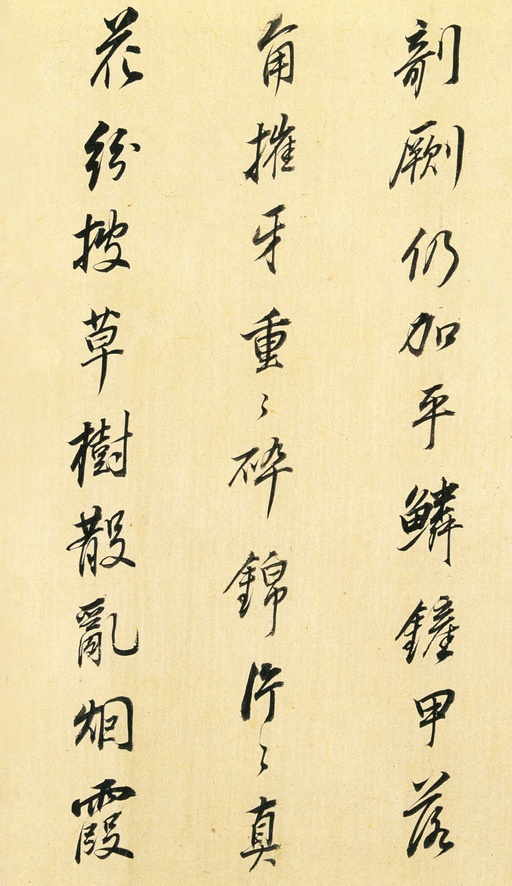 剞劂仍加平鱗鏟甲落
角摧牙重〻碎錦片〻真
花紛披草樹散亂烟霞